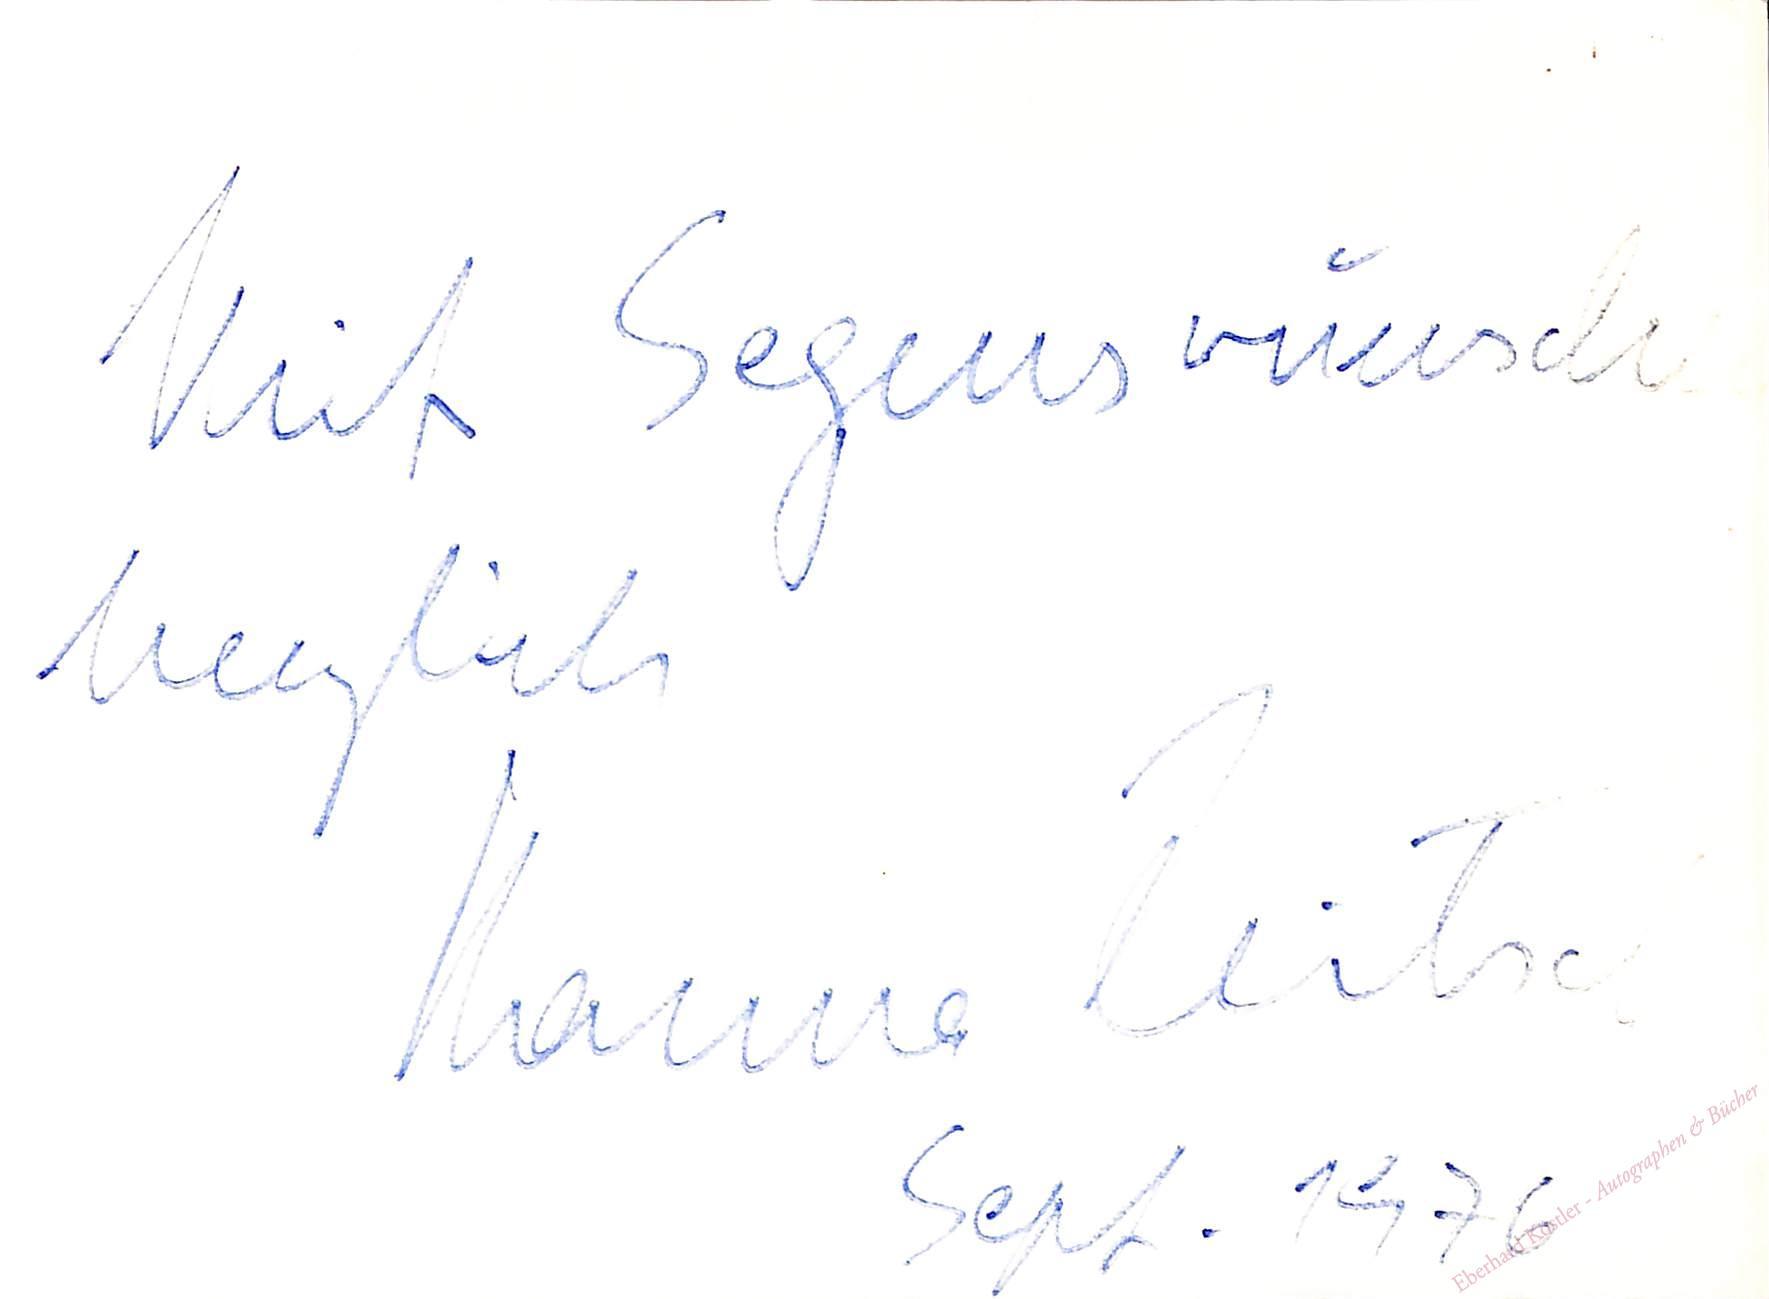 Mit Segenswünsch
herzlich
Hanna Reitsch
Sept. 1976
Eberhard Köstler - Autographen & Bücher